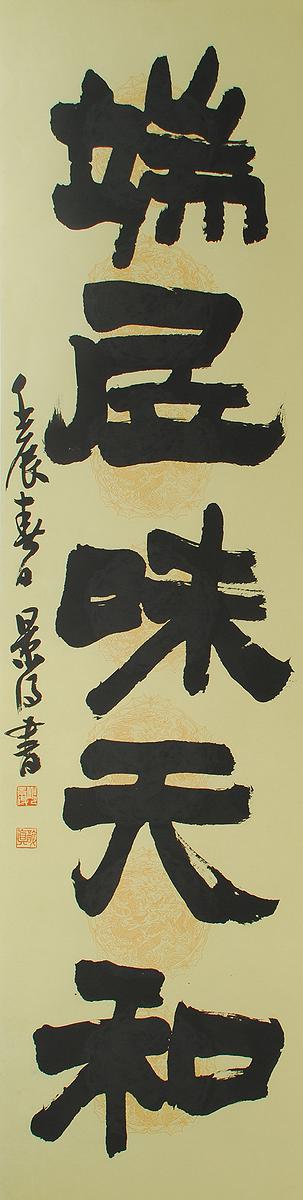 端居味天和
壬辰春日 景書